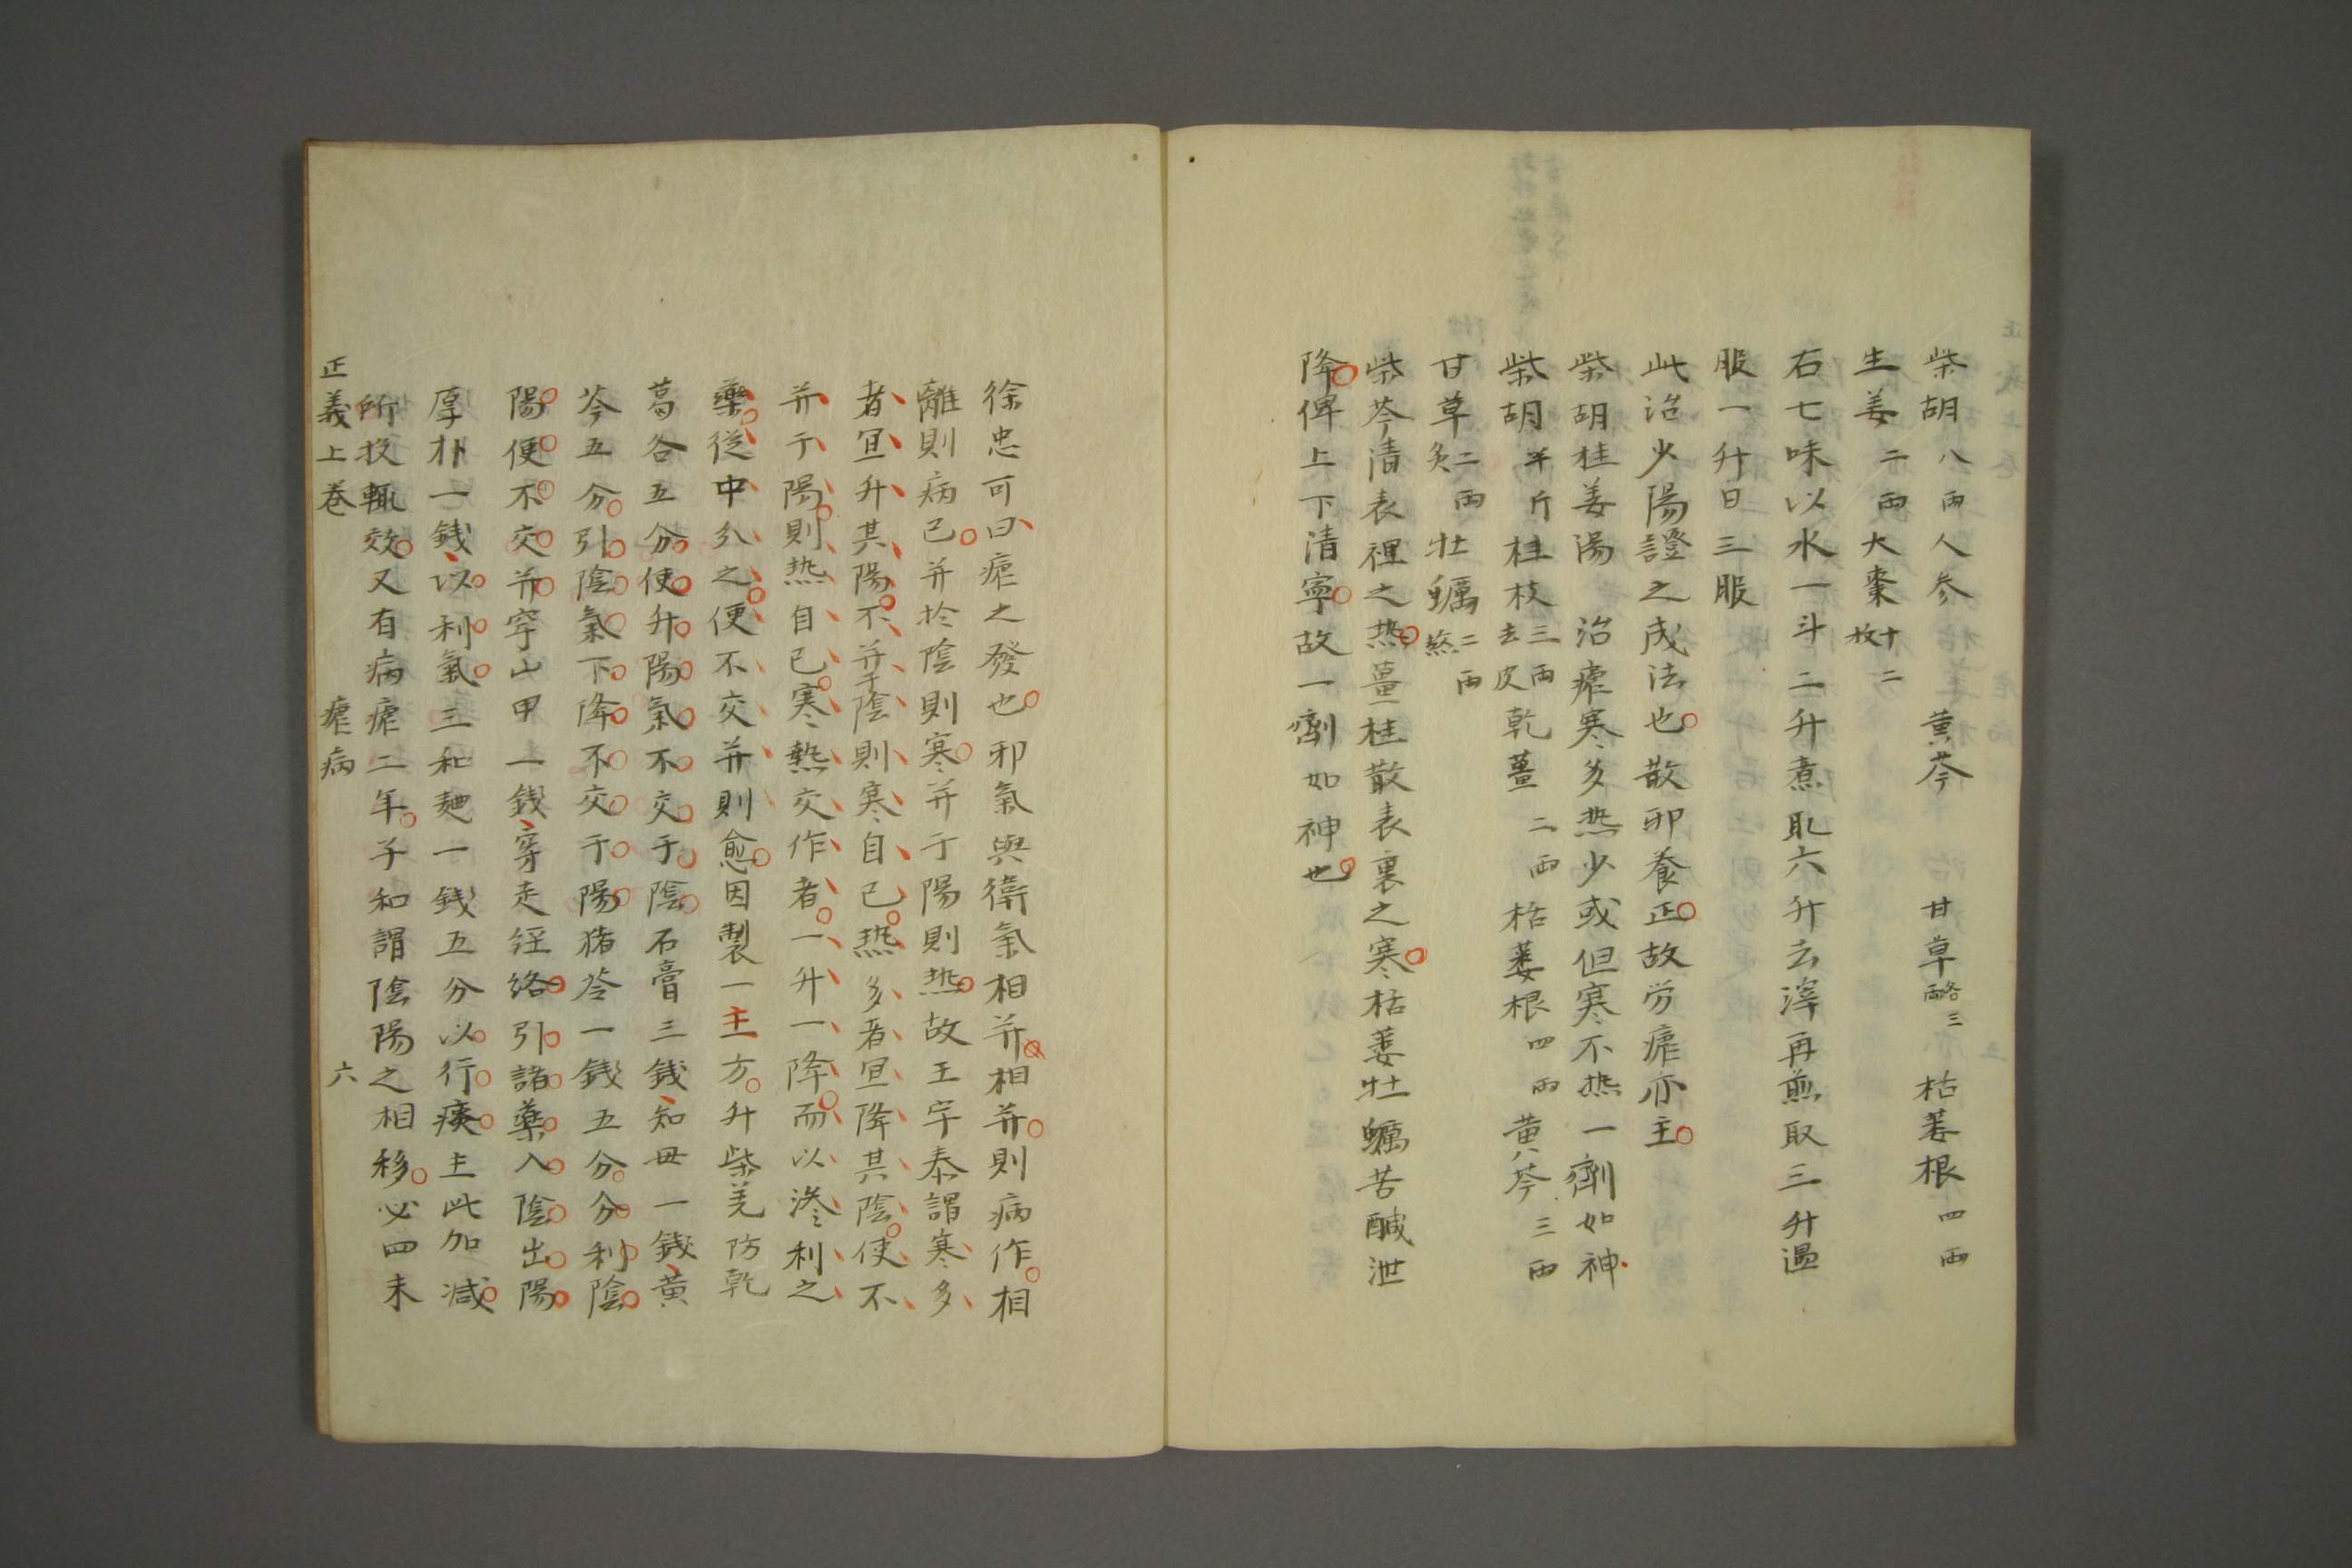 柴胡八兩人参 黄芩 甘草略三兩 枯蒌根四兩
生姜二兩大棗十二枚
右七味以水一斗二升煮取六升去滓再煎取三升温
服一升日三服
此治少陽證之成法也散邪養正故労瘧亦主
柴胡桂姜湯 治瘧寒多热少或但寒不热一劑如神
柴胡半斤桂枝三兩去皮乾薑二兩枯蒌根四兩黄芩三兩
甘草二兩炙牡蠣二兩熬
柴芩清表裡之热薑桂散表裏之寒枯蒌牡蠣苦醎泄
降俾上下清寧故一劑如神也
徐忠可曰瘧之發也邪氣與衛氣相并相并則病作相
離則病已并於陰則寒并于陽則热故王宇泰謂寒多
者宜升其陽不并于陰則寒自已热多者宜降其陰使不
并于陽則热自已寒熱交作者一升一降而以滲利之
藥從中分之便不交并則愈因製一主方升柴羌防乾
葛各五分使升陽氣不交于陰石膏三錢知母一錢黄
芩五分引陰氣下降不交于陽猪苓一錢五分分利陰
陽便不交并穿山甲一錢穿走经絡引諸藥入陰出陽
厚朴一錢以利氣三和麯一錢五分以行痰主此加减
所投輒效又有病瘧二年子和謂陰陽之相移必四末
正義上卷 瘧病 六